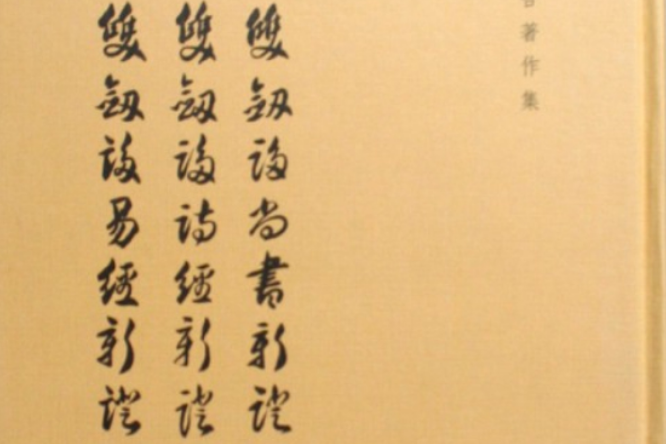 著作集
雙劍誃尚書新證
雙劍誃詩經新證
雙劍誃易經新證